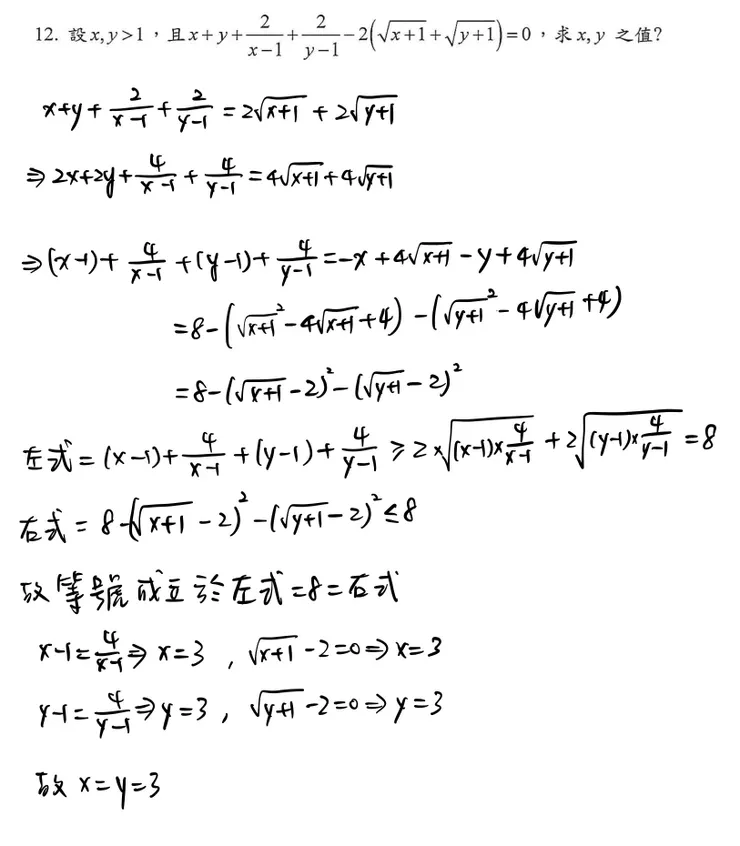 12. 設 x, y > 1，且 x + y + 2/(x−1) + 2/(y−1) − 2(√(x+1) + √(y+1)) = 0，求 x, y 之值?
x+y+ 2/(x−1) + 2/(y−1) = 2√(x+1) + 2√(y+1)
⇒ 2x+2y+ 4/(x−1) + 4/(y−1) = 4√(x+1) + 4√(y+1)
⇒ (x−1)+ 4/(x−1) + (y−1)+ 4/(y−1) = −x + 4√(x+1) − y + 4√(y+1)
= 8 − (√(x+1)² − 4√(x+1) + 4) − (√(y+1)² − 4√(y+1) + 4)
= 8 − (√(x+1) − 2)² − (√(y+1) − 2)²
左式 = (x−1)+ 4/(x−1) + (y−1)+ 4/(y−1) ≥ 2×√((x−1)× 4/(x−1)) + 2√((y−1)× 4/(y−1)) = 8
右式 = 8 − (√(x+1) − 2)² − (√(y+1) − 2)² ≤ 8
故等號成立於左式=8=右式
x−1 = 4/(x−1) ⇒ x=3 , √(x+1) − 2=0 ⇒ x=3
y−1 = 4/(y−1) ⇒ y=3 , √(y+1) − 2=0 ⇒ y=3
故 x=y=3